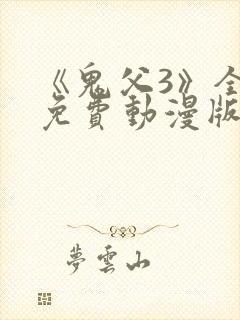 《鬼父3》全
免費動漫版
夢雲山